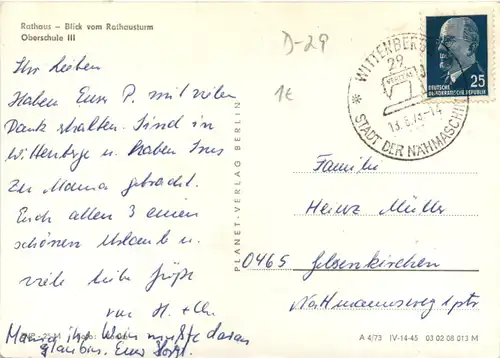 Rathaus – Blick vom Rathausturm
Oberschule III
Ihr Lieben
Haben Euer P. mit vielen
Dank erhalten. Sind in
Wittenberge u. haben Ines
zu Mama gebracht.
Euch allen 3 einen
schönen Urlaub u.
viele liebe Grüße
von H. +
Euer Horst
D-29
1€
WITTENBERGE
29
VERITAS
13.6.74-14
* STADT DER NÄHMASCHINEN
25
DEUTSCHE
DEMOKRATISCHE REPUBLIK
PLANET-VERLAG BERLIN
Familie
Heinz Müller
0465 Gelsenkirchen
1 ptr
A 4/73 IV-14-45 03 02 08 013 M